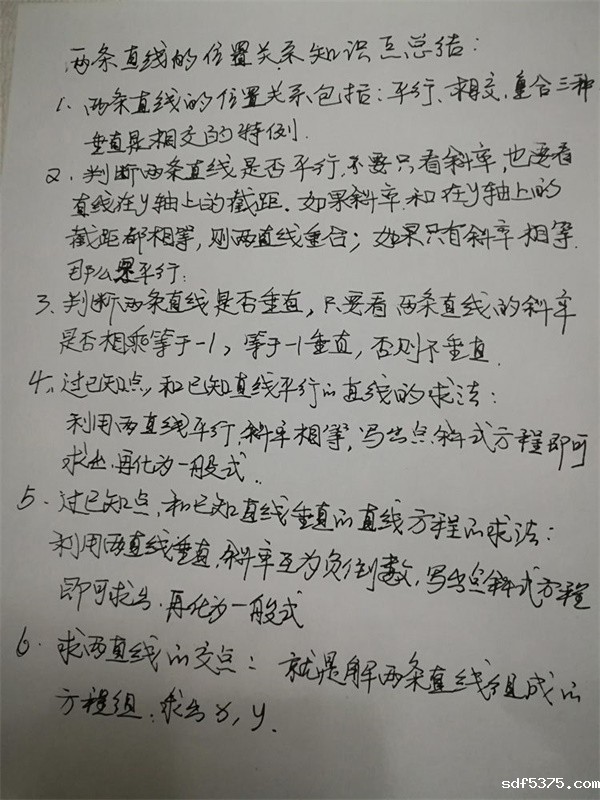 两条直线的位置关系知识点总结:
1、两条直线的位置关系包括:平行、相交、重合三种
垂直是相交的特例.
2、判断两条直线是否平行,不要只看斜率,也要看
直线在y轴上的截距.如果斜率和在y轴上的
截距都相等,则两直线重合;如果只有斜率相等.
那么平行.
3、判断两条直线是否垂直,只要看两条直线的斜率
是否相乘等于-1,等于-1垂直,否则不垂直.
4、过已知点,和已知直线平行的直线的求法:
利用两直线平行,斜率相等,写出点斜式方程即可
求出,再化为一般式.
5、过已知点,和已知直线垂直的直线方程的求法:
利用两直线垂直,斜率互为负倒数,写出点斜式方程
即可求出,再化为一般式
6、求两直线的交点:就是解两条直线组成的
方程组.求出x,y.
sdf5375.com